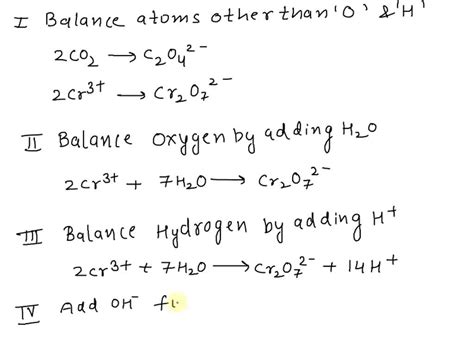 I Balance atoms other than 'O' & 'H'
2CO₂ → C₂O₄²⁻
2Cr³⁺ → Cr₂O₇²⁻
II Balance oxygen by adding H₂O
2Cr³⁺ + 7H₂O → Cr₂O₇²⁻
III Balance Hydrogen by adding H⁺
2Cr³⁺ + 7H₂O → Cr₂O₇²⁻ + 14H⁺
IV Add OH⁻